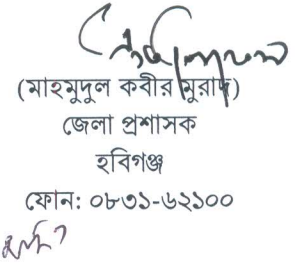 (মাহমুদুল কবীর মুরাদ)
জেলা প্রশাসক
হবিগঞ্জ
ফোন: ০৮৩১-৬২১০০